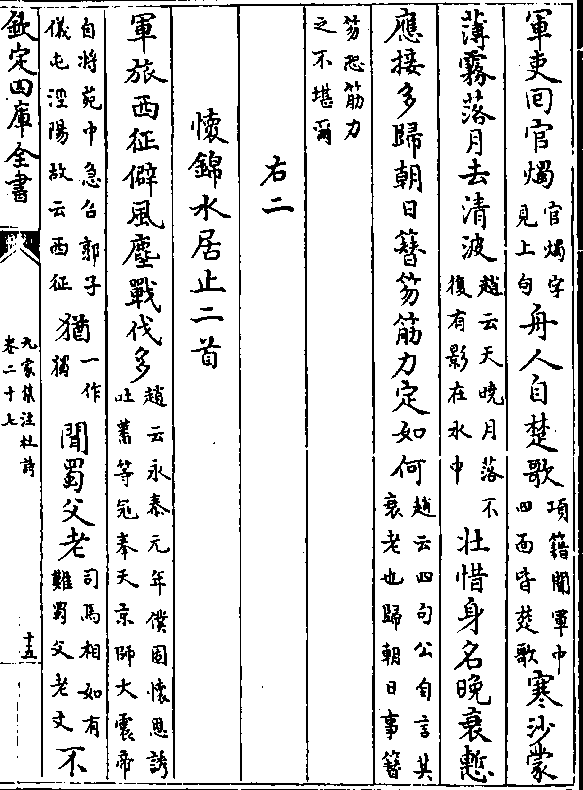 軍吏回官燭官燭字見上句舟人自楚歌項籍聞軍中四面皆楚歌寒沙蒙
薄霧落月去清波趙云天曉月落不復有影在水中壯惜身名晚衰慙
應接多歸朝日簪笏筋力定如何趙云四句公自言其衰老也歸朝日事簪
笏恐筋力之不堪爾
右二
懷錦水居止二首
軍旅西征僻風塵戰伐多趙云永泰元年僕固懷恩誘吐蕃等冦奉天京師大震帝
自將苑中急召郭子儀屯涇陽故云西征猶一作獨聞蜀父老司馬相如有難蜀父老文不
欽定四庫全書
九家集注杜詩
卷二十七
十五